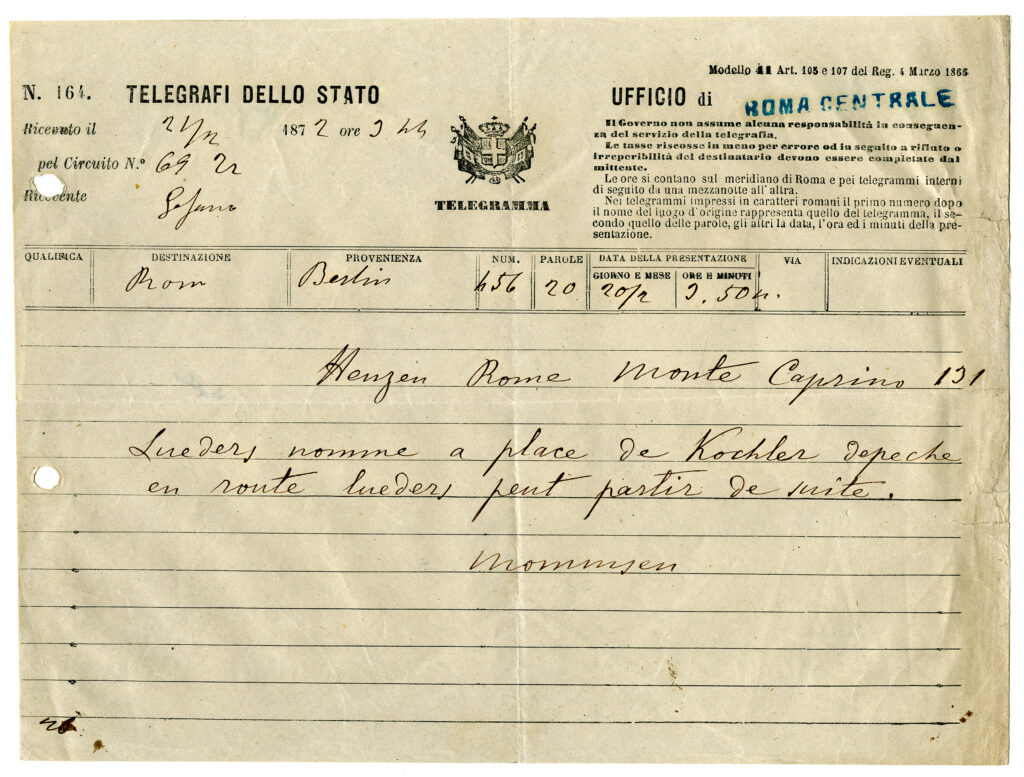 Modello 41 Art. 105 e 107 del Reg. 4 Marzo 1865
N. 164. TELEGRAFI DELLO STATO
UFFICIO di ROMA CENTRALE
Ricevuto il 21/2 1872 ore
pel Circuito N.º 69
Ricevente
TELEGRAMMA
Il Governo non assume alcuna responsabilità in conseguen-
za del servizio della telegrafia.
Le tasse riscosse in meno per errore od in seguito a rifiuto o
irreperibilità del destinatario devono essere completate dal
mittente.
Le ore si contano sul meridiano di Roma e pei telegrammi interni
di seguito da una mezzanotte all'altra.
Nei telegrammi impressi in caratteri romani il primo numero dopo
il nome del luogo d'origine rappresenta quello del telegramma, il se-
condo quello delle parole, gli altri la data, l'ora ed i minuti della pre-
sentazione.
QUALIFICA DESTINAZIONE PROVENIENZA NUM. PAROLE DATA DELLA PRESENTAZIONE VIA INDICAZIONI EVENTUALI
GIORNO E MESE ORE E MINUTI
Rom Berlin 456 20 20/2 3.50
Henzen Rome Monte Caprino 131
Lueders nomme a place de Kochler depeche
en route lueders peut partir de suite.
Mommsen